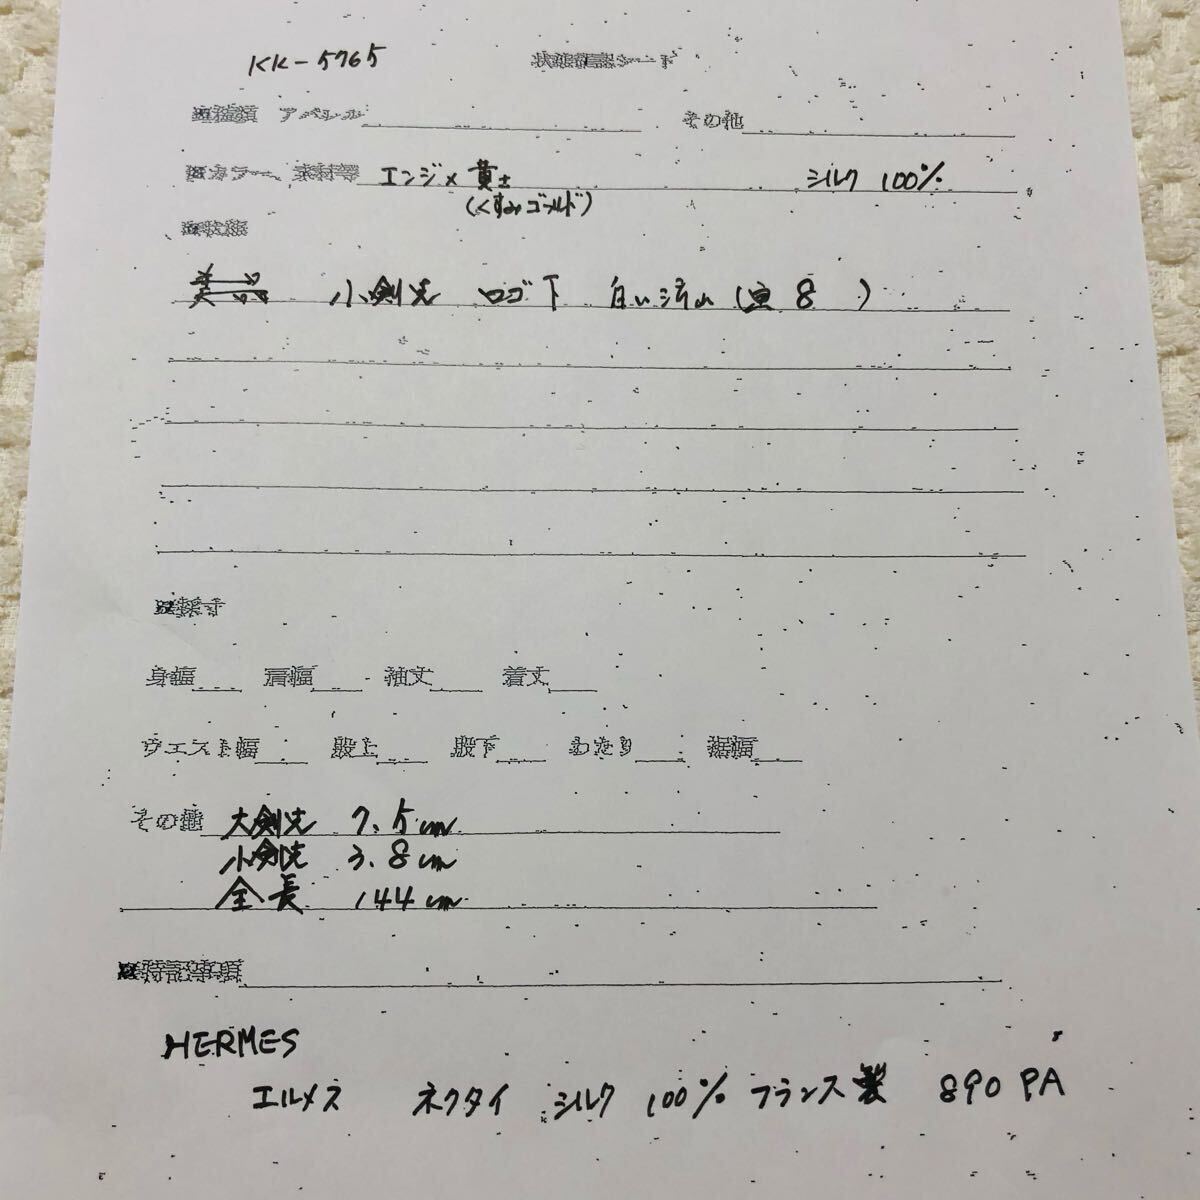 KK-5765 状態確認シート
■種類 アパレル その他
■カラー、素材等 エンジ×黄土 シルク 100%
(くすみゴールド)
■状態
小剣先 ロゴ下 白い汚れ ( 8 )
■採寸
身幅 肩幅 袖丈 着丈
ウエスト幅 股上 股下 わたり 裾幅
その他 大剣先 7.5cm
小剣先 3.8cm
全長 144cm
■特記事項
HERMES
エルメス ネクタイ シルク 100% フランス製 890 PA